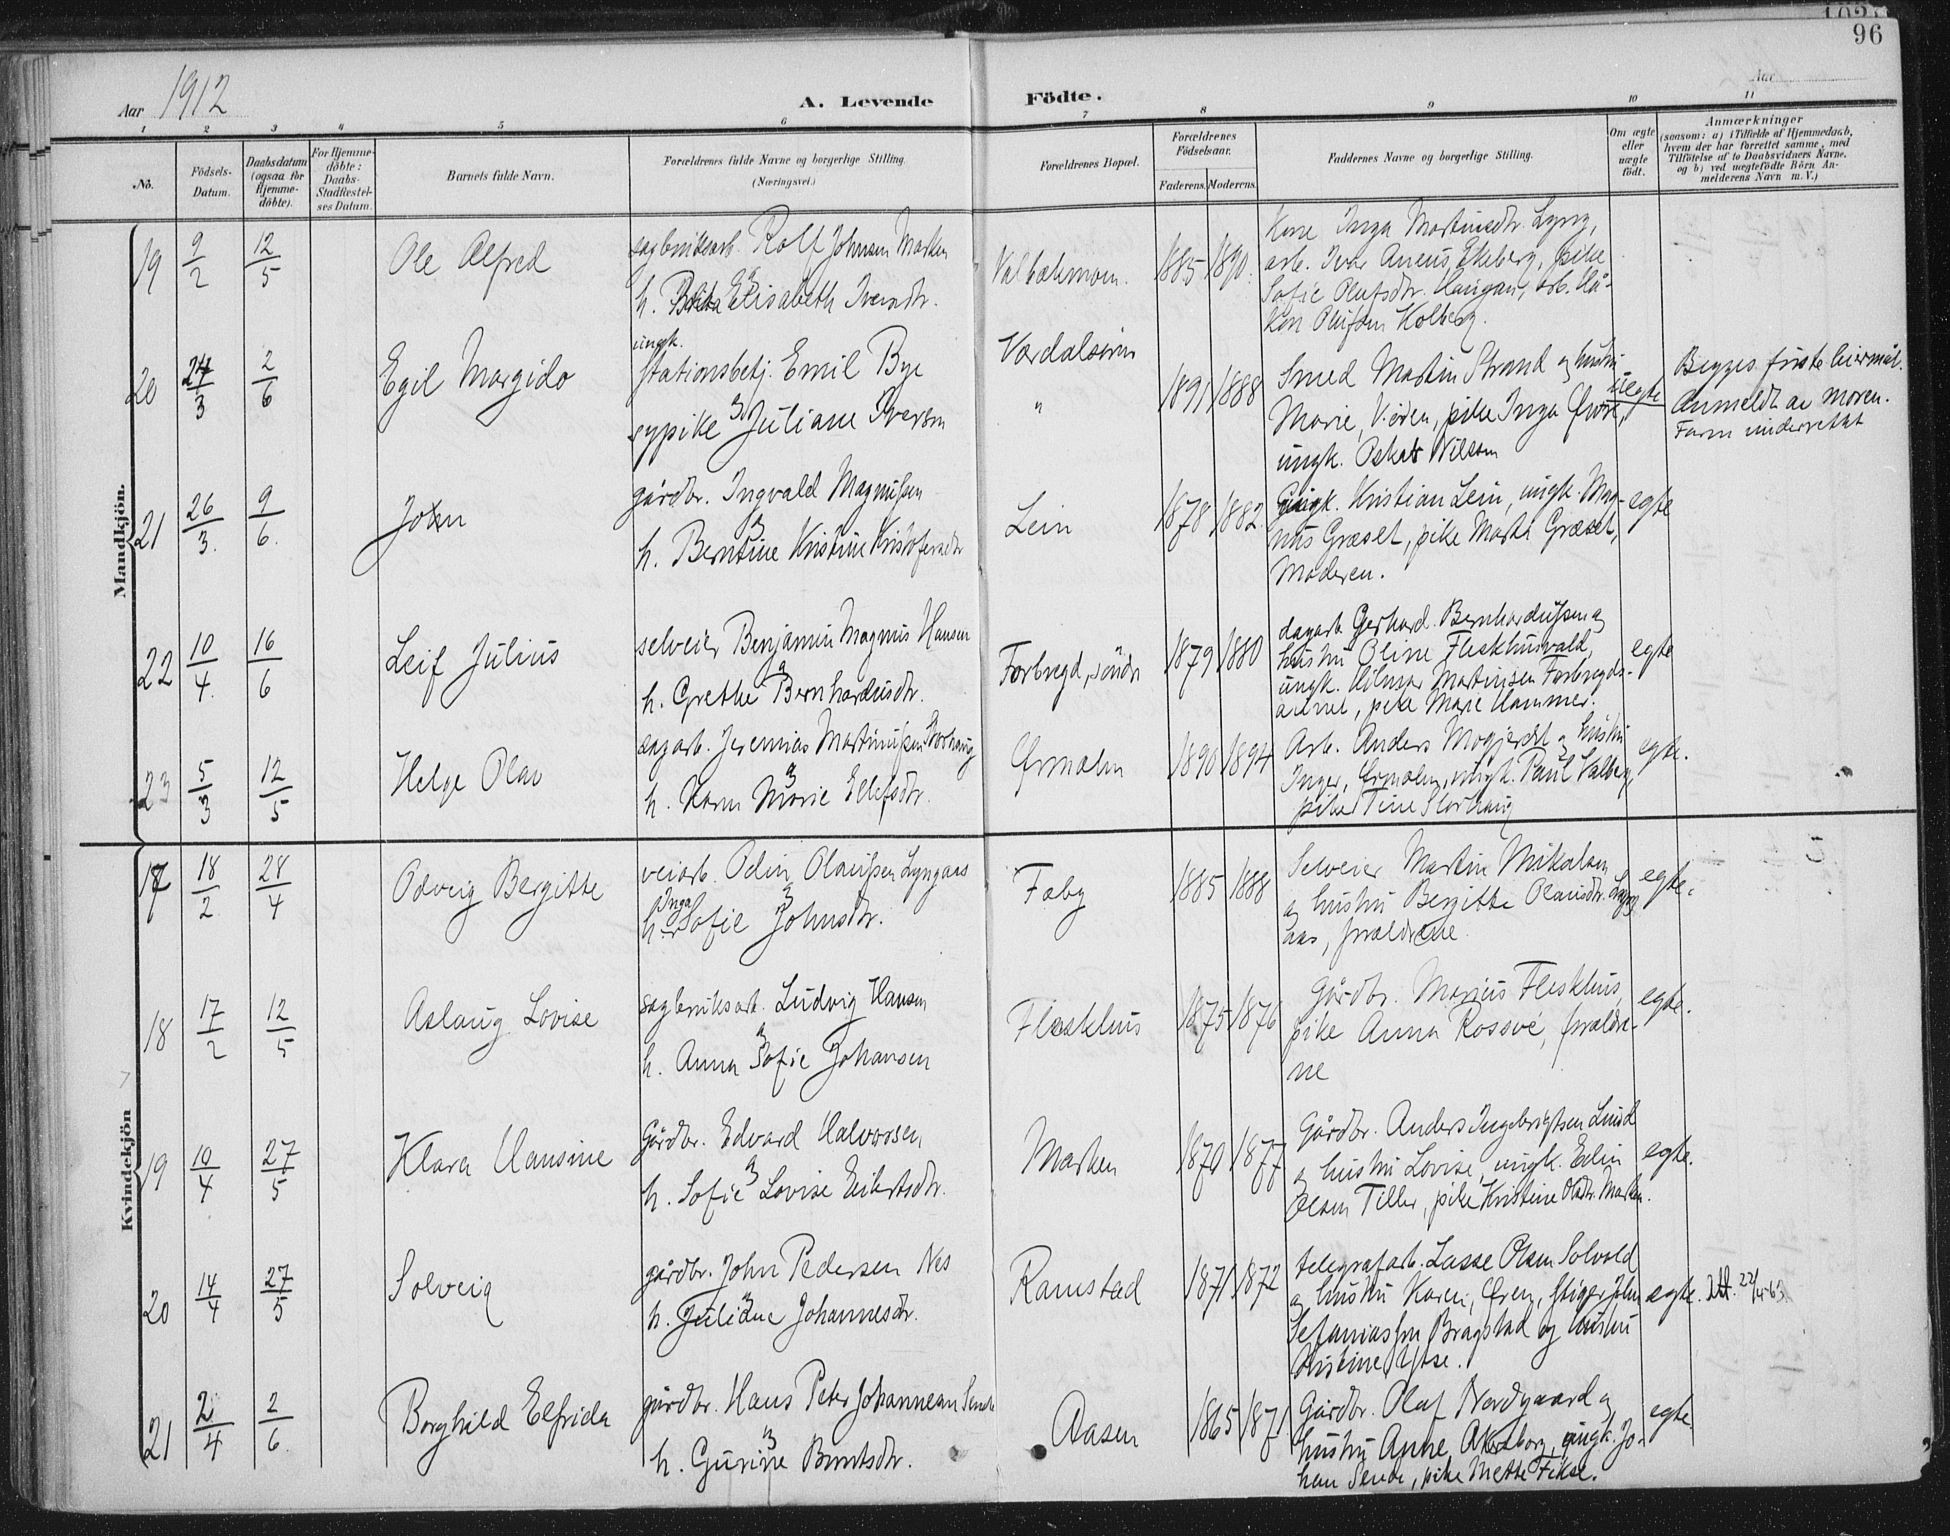 96
Aar 1912
A. Levende Födte.
Aar
1 2 3 4 5 6 7 8 9 10 11
No.
Födsels-
Datum.
Daabsdatum
(ogsaa for
Hjemme-
döbte).
For Hjemme-
döbte:
Daabs-
Stadfæstel-
ses Datum.
Barnets fulde Navn.
Forældrenes fulde Navne og borgerlige Stilling.
(Næringsvei.)
Forældrenes Bopæl.
Forældrenes
Födselsaar.
Faderens. Moderens.
Faddernes Navne og borgerlige Stilling.
Om ægte
eller
uægte
født.
Anmærkninger
(saasom: a) i Tilfælde af Hjemmedaab,
hvem der har forrettet samme, med
Tilföielse af to Daabsvidners Navne,
og b) ved uægtefödte Börn An-
melderens Navn m. V.)
Mandkjön.
19 9/2 12/5 Ole Alfred
sagbruksarb. Rolf Johnsen Marken
h. Elisabeth Iversdtr.
1885 1890.
Kone Inga Martinsdtr. Lyng,
arb. Ivar Aneus Ekeberg, pike
Sofie Olufsdtr. Haugan, arb. Hå-
kon Olufsen Kolberg.
20 24/3 2/6 Egil Margido
ungk.
stationsbetj. Emil Bye
sypike Juliane Iversen
Værdalsøren
"
1891 1888
Smed Martin Strand og hustru
Marie, Vøren, pike Inga
ungk. Oskar Nilsen
uegte
Begges første leiermål.
Anmeldt av moren.
Faren underrettet
21 26/3. 9/6. John
gårdbr. Ingvald Magnussen
h. Berntine Kristine Kristofersdtr
Lein
1878 1882.
ungk. Kristian Lein, ungk. Mag-
nus Græset, pike Marta Græset,
Moderen.
egte
22 10/4. 16/6 Leif Julius
selveier Benjamin Magnus Hansen
h. Grethe Bernhardusdtr.
Forbregd, søndr
1879 1880
dagarb. Gerhard Bernhardussen og
hustru Oline Fleskhusvald,
ungk. Hilmar Martinsen Forbregds-
pike Marie Hammer.
egte
23 5/3 12/5 Helge Olav
dagarb. Jeremias Martinussen Storhaug
h. Karen Marie Ellefsdtr.
Ørmelen
1890 1894
Arb. Anders Mogjerdet og hustru
Inger, Ørmelen, ungk. Paul Valberg,
pike Tine Storhaug
egte.
Kvindekjön
17 18/2 28/4 Odveig Bergitte
veiarb. Odin Olaussen Lyngaas
Inga
h. Sofie Johnsdtr.
Faby
1885 1888
Selveier Martin Mikalsen
og hustru Bergitte Olausdtr. Lyng-
aas, forældrene
egte.
18 17/2 12/5 Aslaug Lovise
sagbruksarb. Ludvig Hansen
h. Anna Sofie Johansen
Fleskhus
1875 1876
Gårdbr. Marius Fleskhus,
pike Anna Rossve, forældre-
ne
egte.
19 10/4 27/5 Klara Hansine
Gårdbr. Edvard Halvorsen
h. Sofie Lovise Eilertsdtr.
Marken
1870 1877
Gårdbr. Anders Ingebrigtsen Lund
og hustru Lovise, ungk. Edin
Olsen Tiller, pike Kristine Olsdtr. Marken.
egte.
20 14/4 27/5 Solveig
gårdbr. John Pedersen Nes
h. Juliane Johannesdtr.
Ramstad
1871 1872
telegrafarb. Lasse Olsen Solvold
og hustru Karen, Øren, stiger John
Sefaniassen Bragstad og hustru
Kristine, Ytse.
egte.
22/4-63
21 2/4 2/6. Borghild Elfrida
gårdbr. Hans Peter Johannesen Sende
h. Gurine Berntsdtr.
Aasen
1865 1871
Gårdbr. Olaf Nordgaard og
hustru Anne Akersborg, ungk. Jo-
han Sende, pike Mette Fikse.
egte.